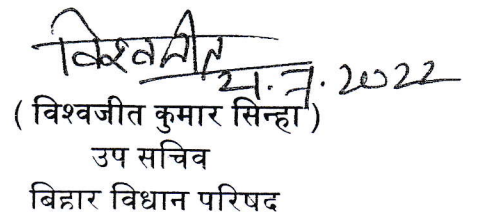 विश्वजीत
2022
( विश्वजीत कुमार सिन्हा )
उप सचिव
बिहार विधान परिषद